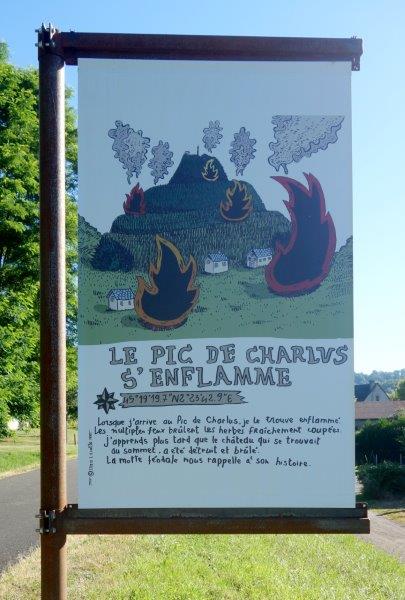 LE PIC DE CHARLUS
S'ENFLAMME
45°19'19.7"N2°23'42.9"E
Lorsque j'arrive au Pic de Charlus, je le trouve enflammé.
Les multiples feux brûlent les herbes fraîchement coupées.
J'apprends plus tard que le château qui se trouvait
au sommet, a été détruit et brûlé.
La motte féodale nous rappelle à son histoire.